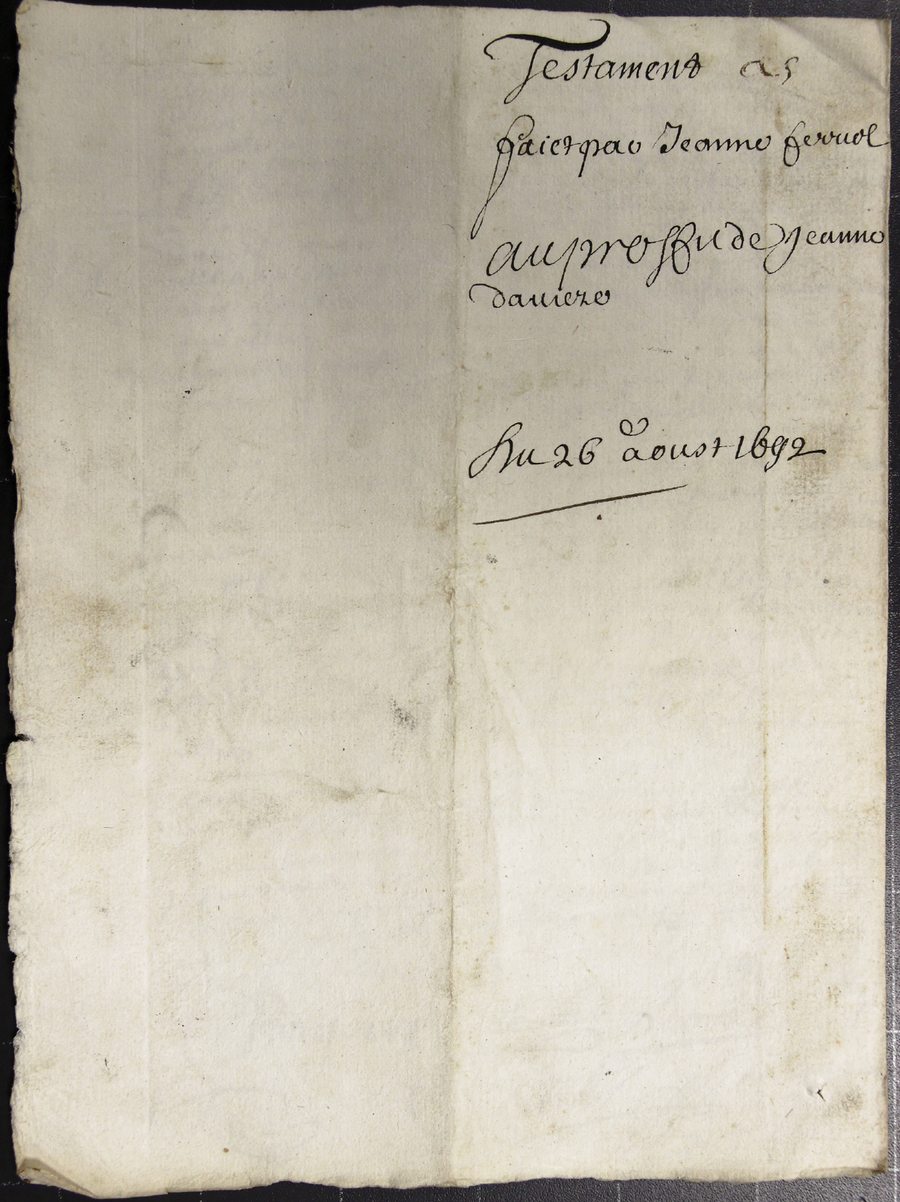 Testament
faict par Jeanne ferriol
au proffit de Jeanne
daviere
Du 26e aoust 1692